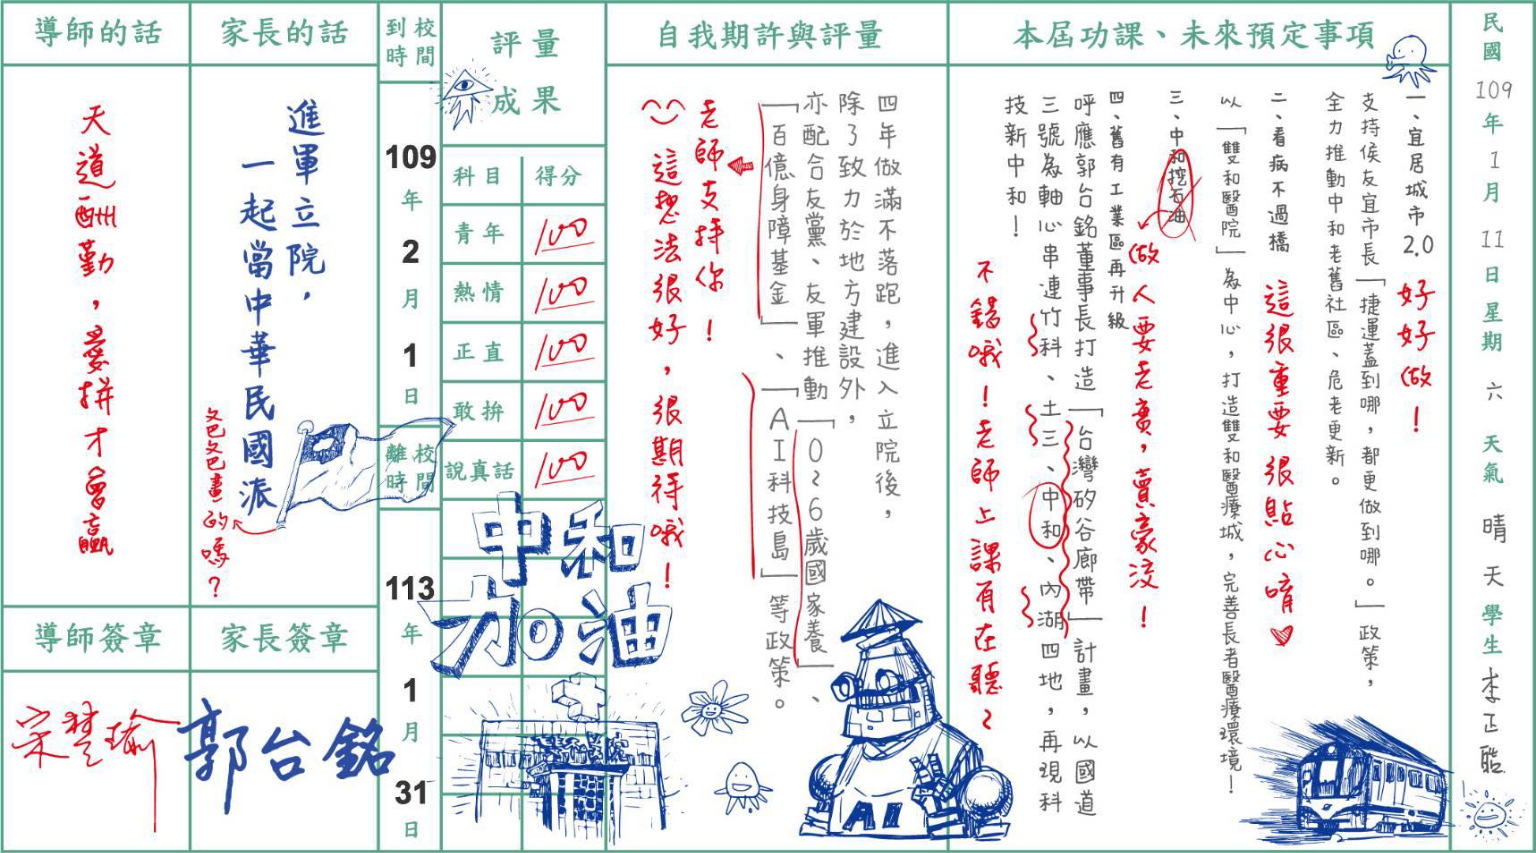 民國109年1月11日星期六 天氣 晴天 學生 李正皓
本屆功課、未來預定事項
一、宜居城市2.0
好好做！
支持侯友宜市長「捷運蓋到哪，都更做到哪。」政策，
全力推動中和老舊社區、危老更新。
二、看病不過橋
這很重要很貼心唷
以「雙和醫院」為中心，打造雙和醫療城，完善長者醫療環境！
三、中和挖石油
做人要老實，賣豪洨！
四、舊有工業區再升級
呼應郭台銘董事長打造「台灣矽谷廊帶」計畫，以國道
三號為軸心串連竹科、土三、中和、內湖四地，再現科
技新中和！
不錯哦！老師上課有在聽～
自我期許與評量
四年做滿不落跑，進入立院後，
除了致力於地方建設外，
亦配合友黨、友軍推動「0~6歲國家養」、
「百億身障基金」、「AI科技島」等政策。
老師支持你！
這想法很好，很期待哦！
AI
評量
成果
科目 得分
青年 100
熱情 100
正直 100
敢拚 100
說真話 100
中和
加油
雙和醫院
到校時間
109年2月1日
離校時間
113年1月31日
家長的話
進軍立院，
一起當中華民國派
爸爸畫的嗎？
家長簽章
郭台銘
導師的話
天道酬勤，愛拼才會贏
導師簽章
宋楚瑜